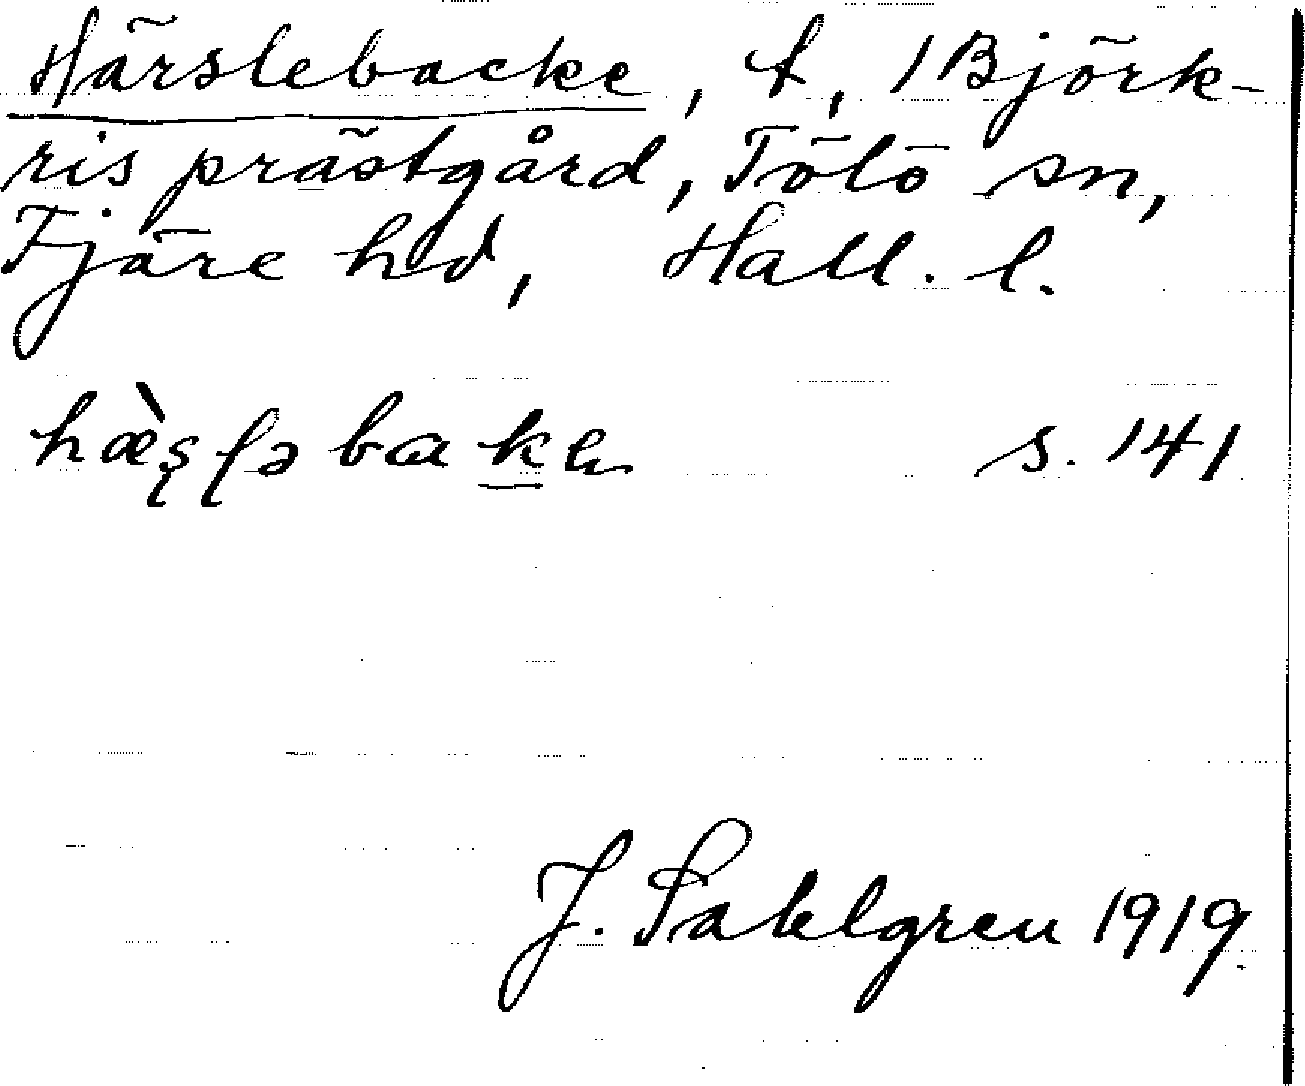 Härslebacke, t, 1 Björk-
ris prästgård, Tölö sn,
Fjäre hd, Hall. l.
hæ̀ʂʃə bakən s. 141
J. Sahlgren 1919.